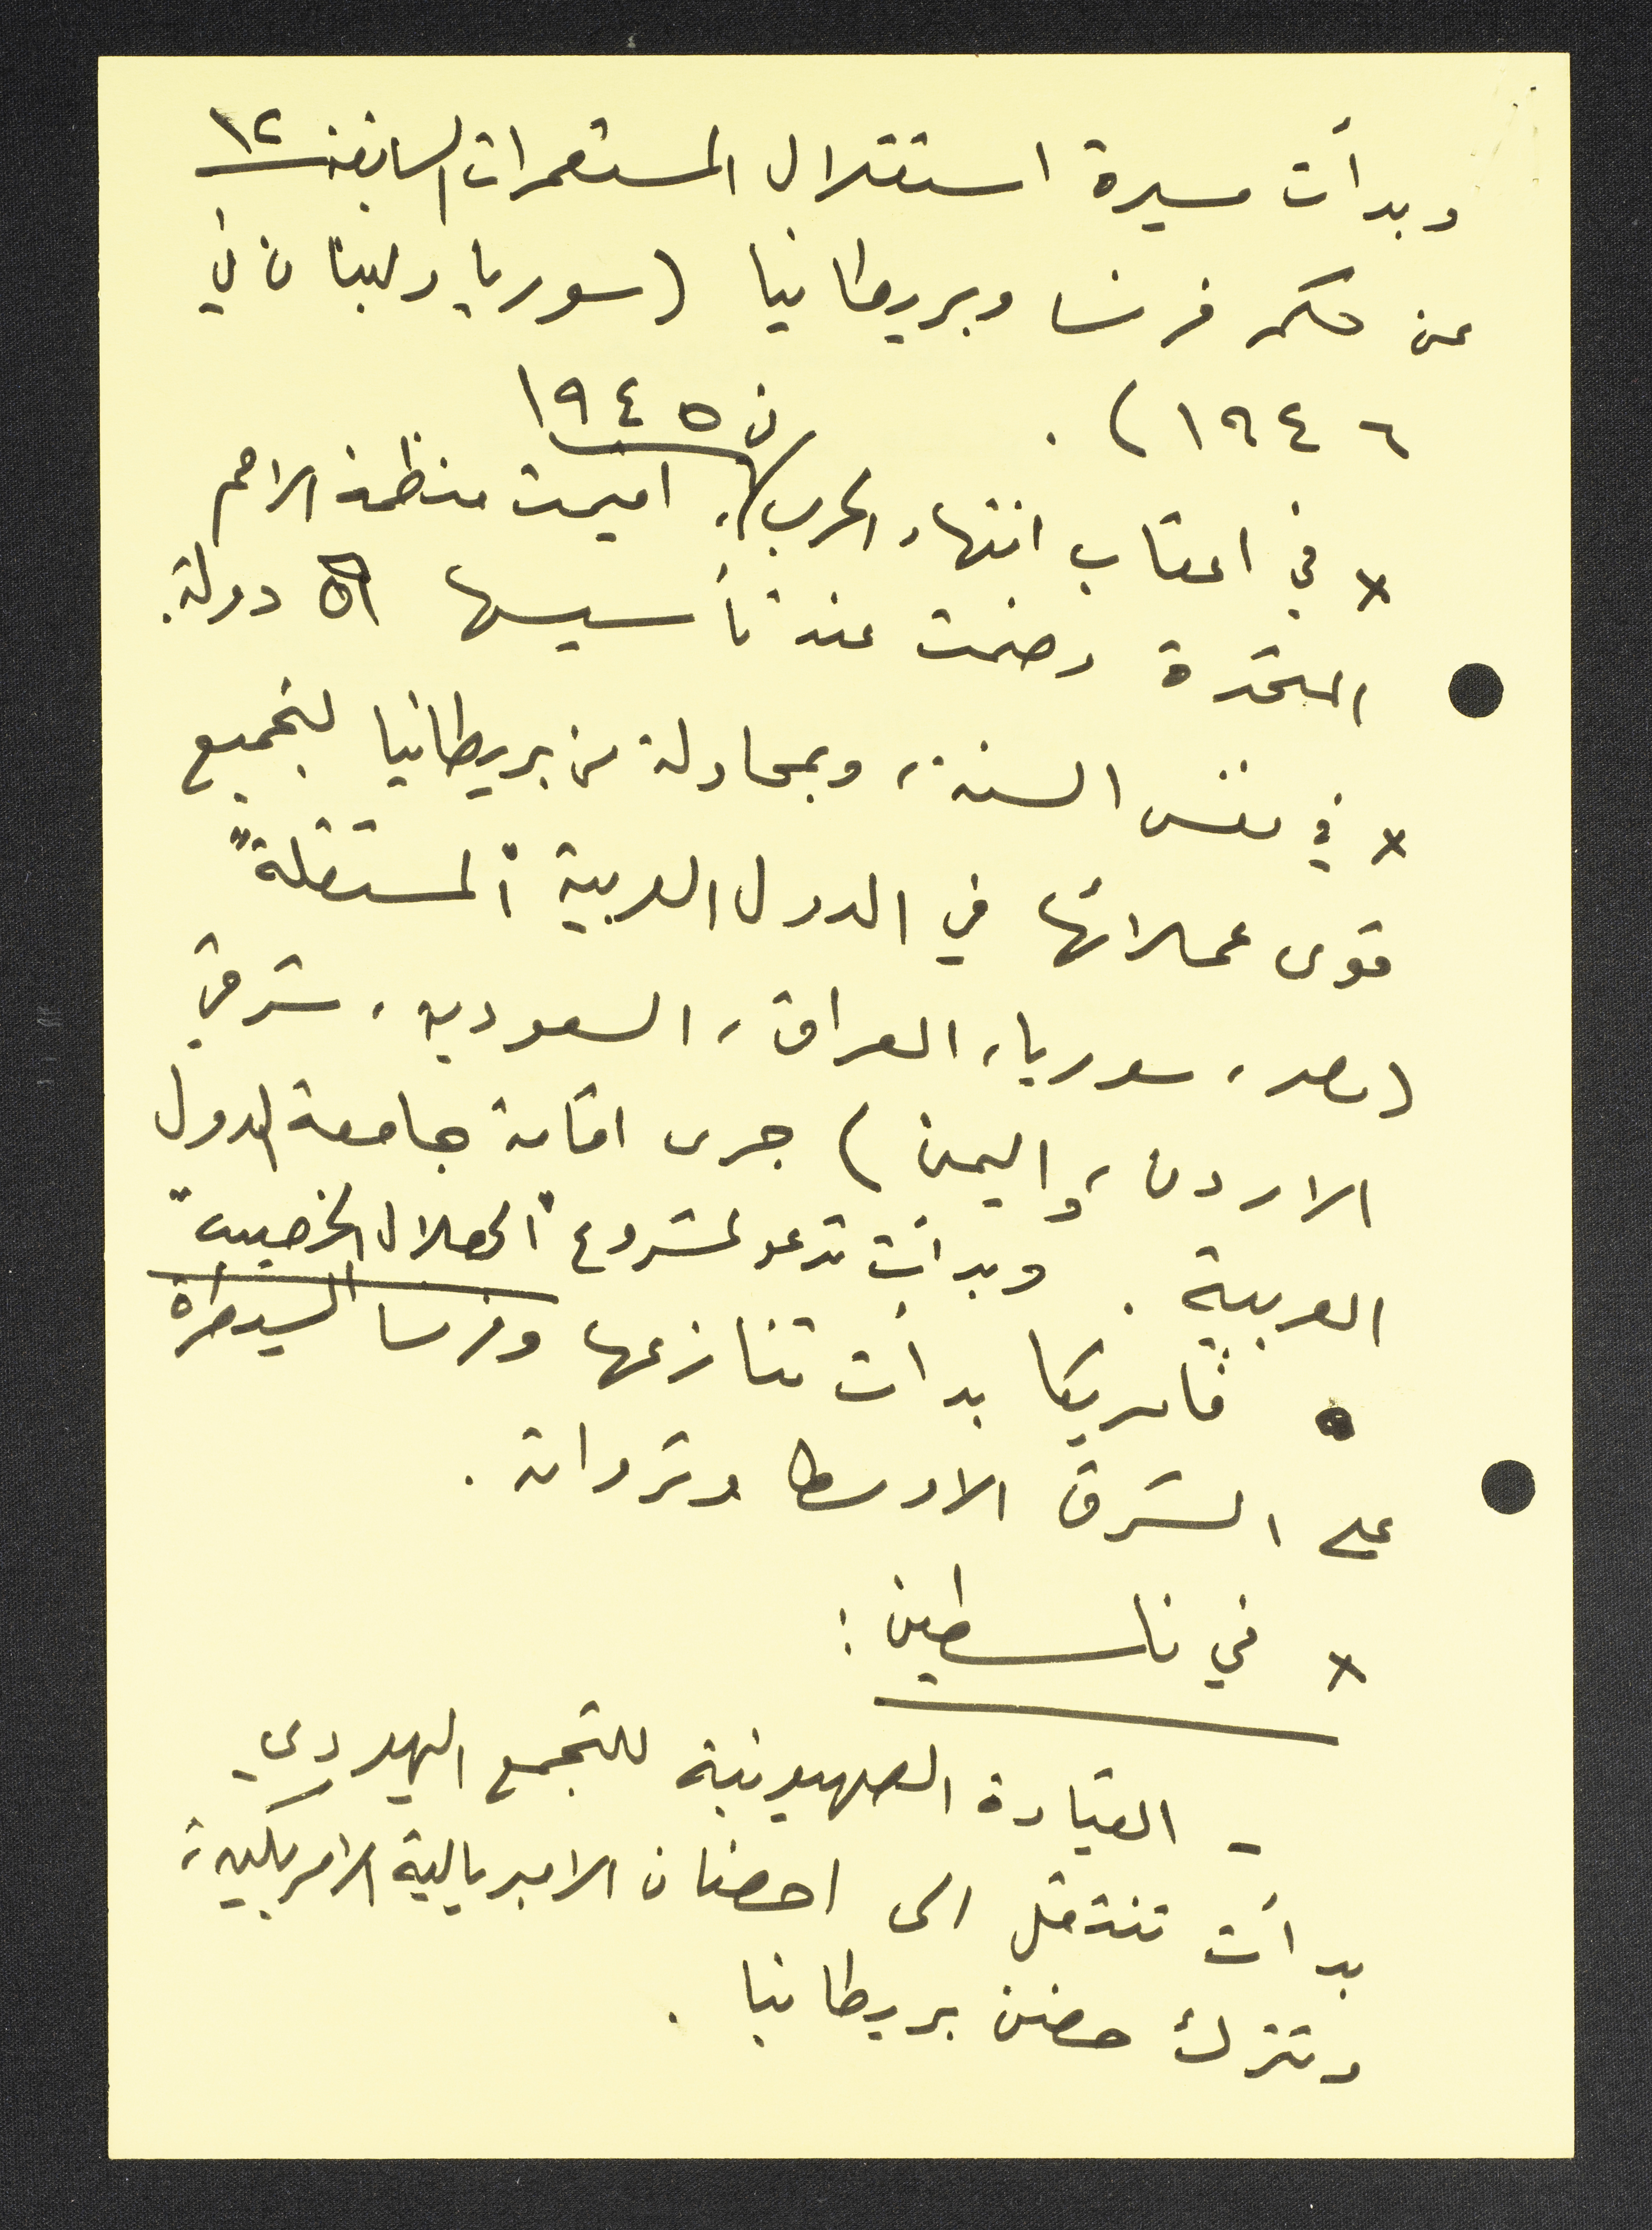 ١٢
وبدأت مسيرة استقلال المستعمرات السابقة
عن حكم فرنسا وبريطانيا (سوريا ولبنان في
١٩٤٦).
في ١٩٤٥
× في اعقاب انتهاء الحرب، اقيمت منظمة الامم
المتحدة وضمت عند تأسيسها ٥١ دولة.
× في نفس السنة، وبمحاولة من بريطانيا لتجميع
قوى عملائها في الدول العربية "المستقلة"
(مصر، سوريا، العراق، السعودية، شرقي
الاردن، واليمن) جرى اقامة جامعة الدول
العربية. وبدأت تدعو لمشروع "الهلال الخصيب"
• فأمريكا بدأت تنازعها وفرنسا السيطرة
على الشرق الاوسط وثرواته.
× في فلسطين:
- القيادة الصهيونية للتجمع اليهودي
بدأت تنتقل الى احضان الامبريالية الامريكية،
وتترك حضن بريطانيا.